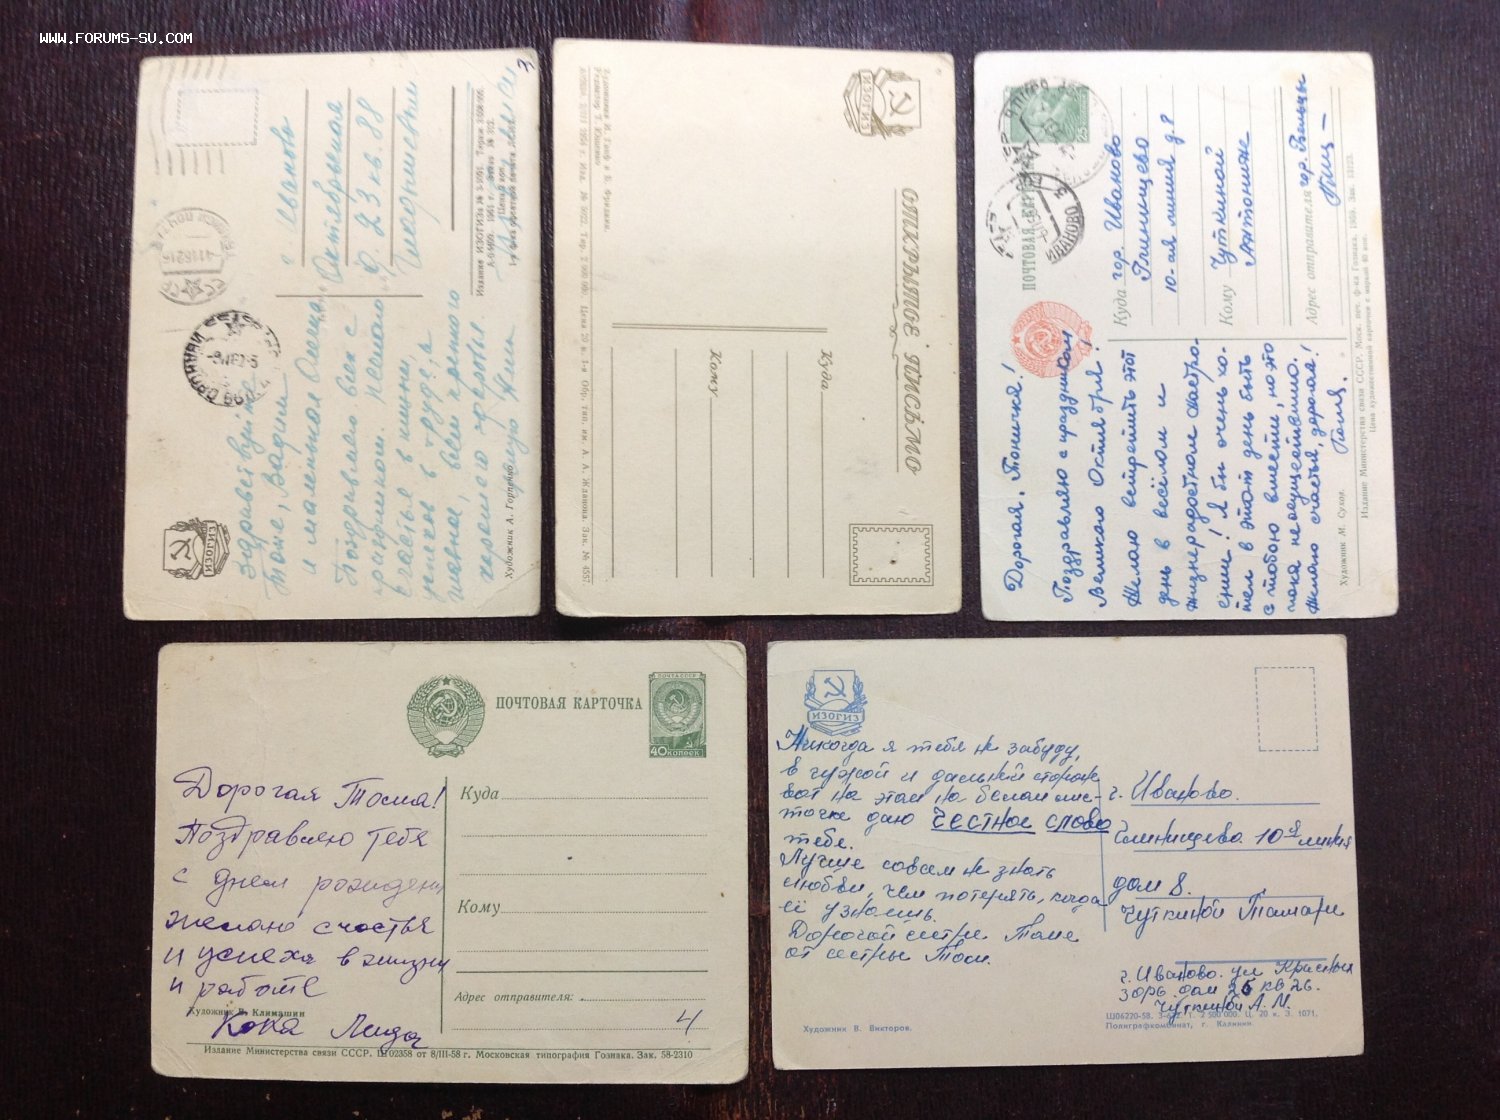 WWW.FORUMS-SU.COM
3
г. Иваново
Октябрьская
д. 23 кв. 88
Здравствуйте
Тоня, Вадим
и маленькая Олечка
Поздравляю всех с
праздником. Желаю
счастья в жизни,
успехов в труде, а
главное, всем крепкого
хорошего здоровья.
ИЗОГИЗ
Художник А. Горпенко
ИЗОГИЗ
ОТКРЫТОЕ ПИСЬМО
Куда
Кому
ПОЧТОВАЯ КАРТОЧКА
ИВАНОВО
Куда гор. Иваново
Глинищево
10-ая линия д. 8
Кому Чуткиной
Антонине
Адрес отправителя гор.
Дорогая Тонечка!
Поздравляю с праздником
Великого Октября!
Желаю встретить этот
день в весёлом и
жизнерадостном настро-
ении! Я бы очень хо-
тел в этот день быть
с тобою вместе, но это
пока неосуществимо.
Желаю счастья, дорогая!
Художник М. Сухов.
Издание Министерства связи СССР. Моск. печ. ф-ка Гознака. 1959. Зак.
Цена художественной карточки с маркой 40 коп.
ПОЧТОВАЯ КАРТОЧКА
ПОЧТА СССР
40 КОПЕЕК
Дорогая Тося!
Поздравляю тебя
с днем рожденья
желаю счастья
и успеха в жизни
и работе
Кока Лида
Куда
Кому
Адрес отправителя:
4
Художник В. Климашин
Издание Министерства связи СССР. Ш02358 от 8/III-58 г. Московская типография Гознака. Зак. 58-2310
ИЗОГИЗ
Никогда я тебя не забуду,
в чужой и дальней стороне
вот на этом на белом лис-
точке даю честное слово
тебе.
Лучше совсем не знать
любви, чем потерять, когда
её узнаешь.
Дорогой сестре Томе
от сестры Тоси.
г. Иваново.
Глинищево. 10я линия
дом 8.
Чуткиной Тамаре
г. Иваново. ул Красных
зорь дом 26 кв 26.
Чуткиной А. М.
Художник В. Викторов.
Ш06220-58. 2 500 000. Ц. 20 к. З. 1071.
Полиграфкомбинат, г. Калинин